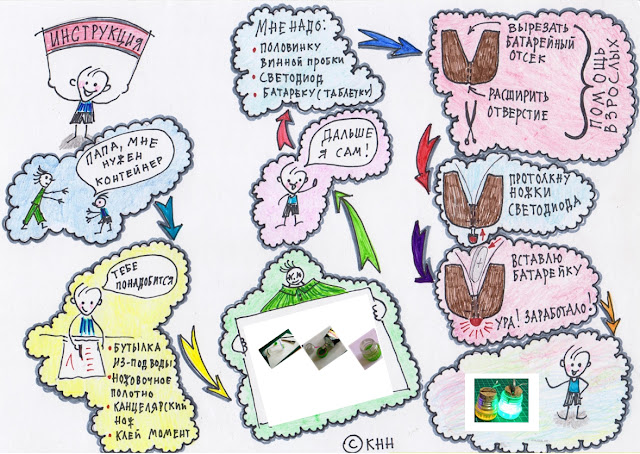 ИНСТРУКЦИЯ
ПАПА, МНЕ
НУЖЕН
КОНТЕЙНЕР
ТЕБЕ
ПОНАДОБИТСЯ
• БУТЫЛКА
ИЗ-ПОД ВОДЫ
• НОЖОВОЧНОЕ
ПОЛОТНО
• КАНЦЕЛЯРСКИЙ
НОЖ
• КЛЕЙ МОМЕНТ
ДАЛЬШЕ
Я САМ!
МНЕ НАДО:
• ПОЛОВИНКУ
ВИННОЙ ПРОБКИ
• СВЕТОДИОД
• БАТАРЕКУ (ТАБЛЕТКУ)
ВЫРЕЗАТЬ
БАТАРЕЙНЫЙ
ОТСЕК
РАСШИРИТЬ
ОТВЕРСТИЕ
ПОМОЩЬ
ВЗРОСЛЫХ
ПРОТОЛКНУ
НОЖКИ
СВЕТОДИОДА
ВСТАВЛЮ
БАТАРЕЙКУ
УРА! ЗАРАБОТАЛО!
© КНН